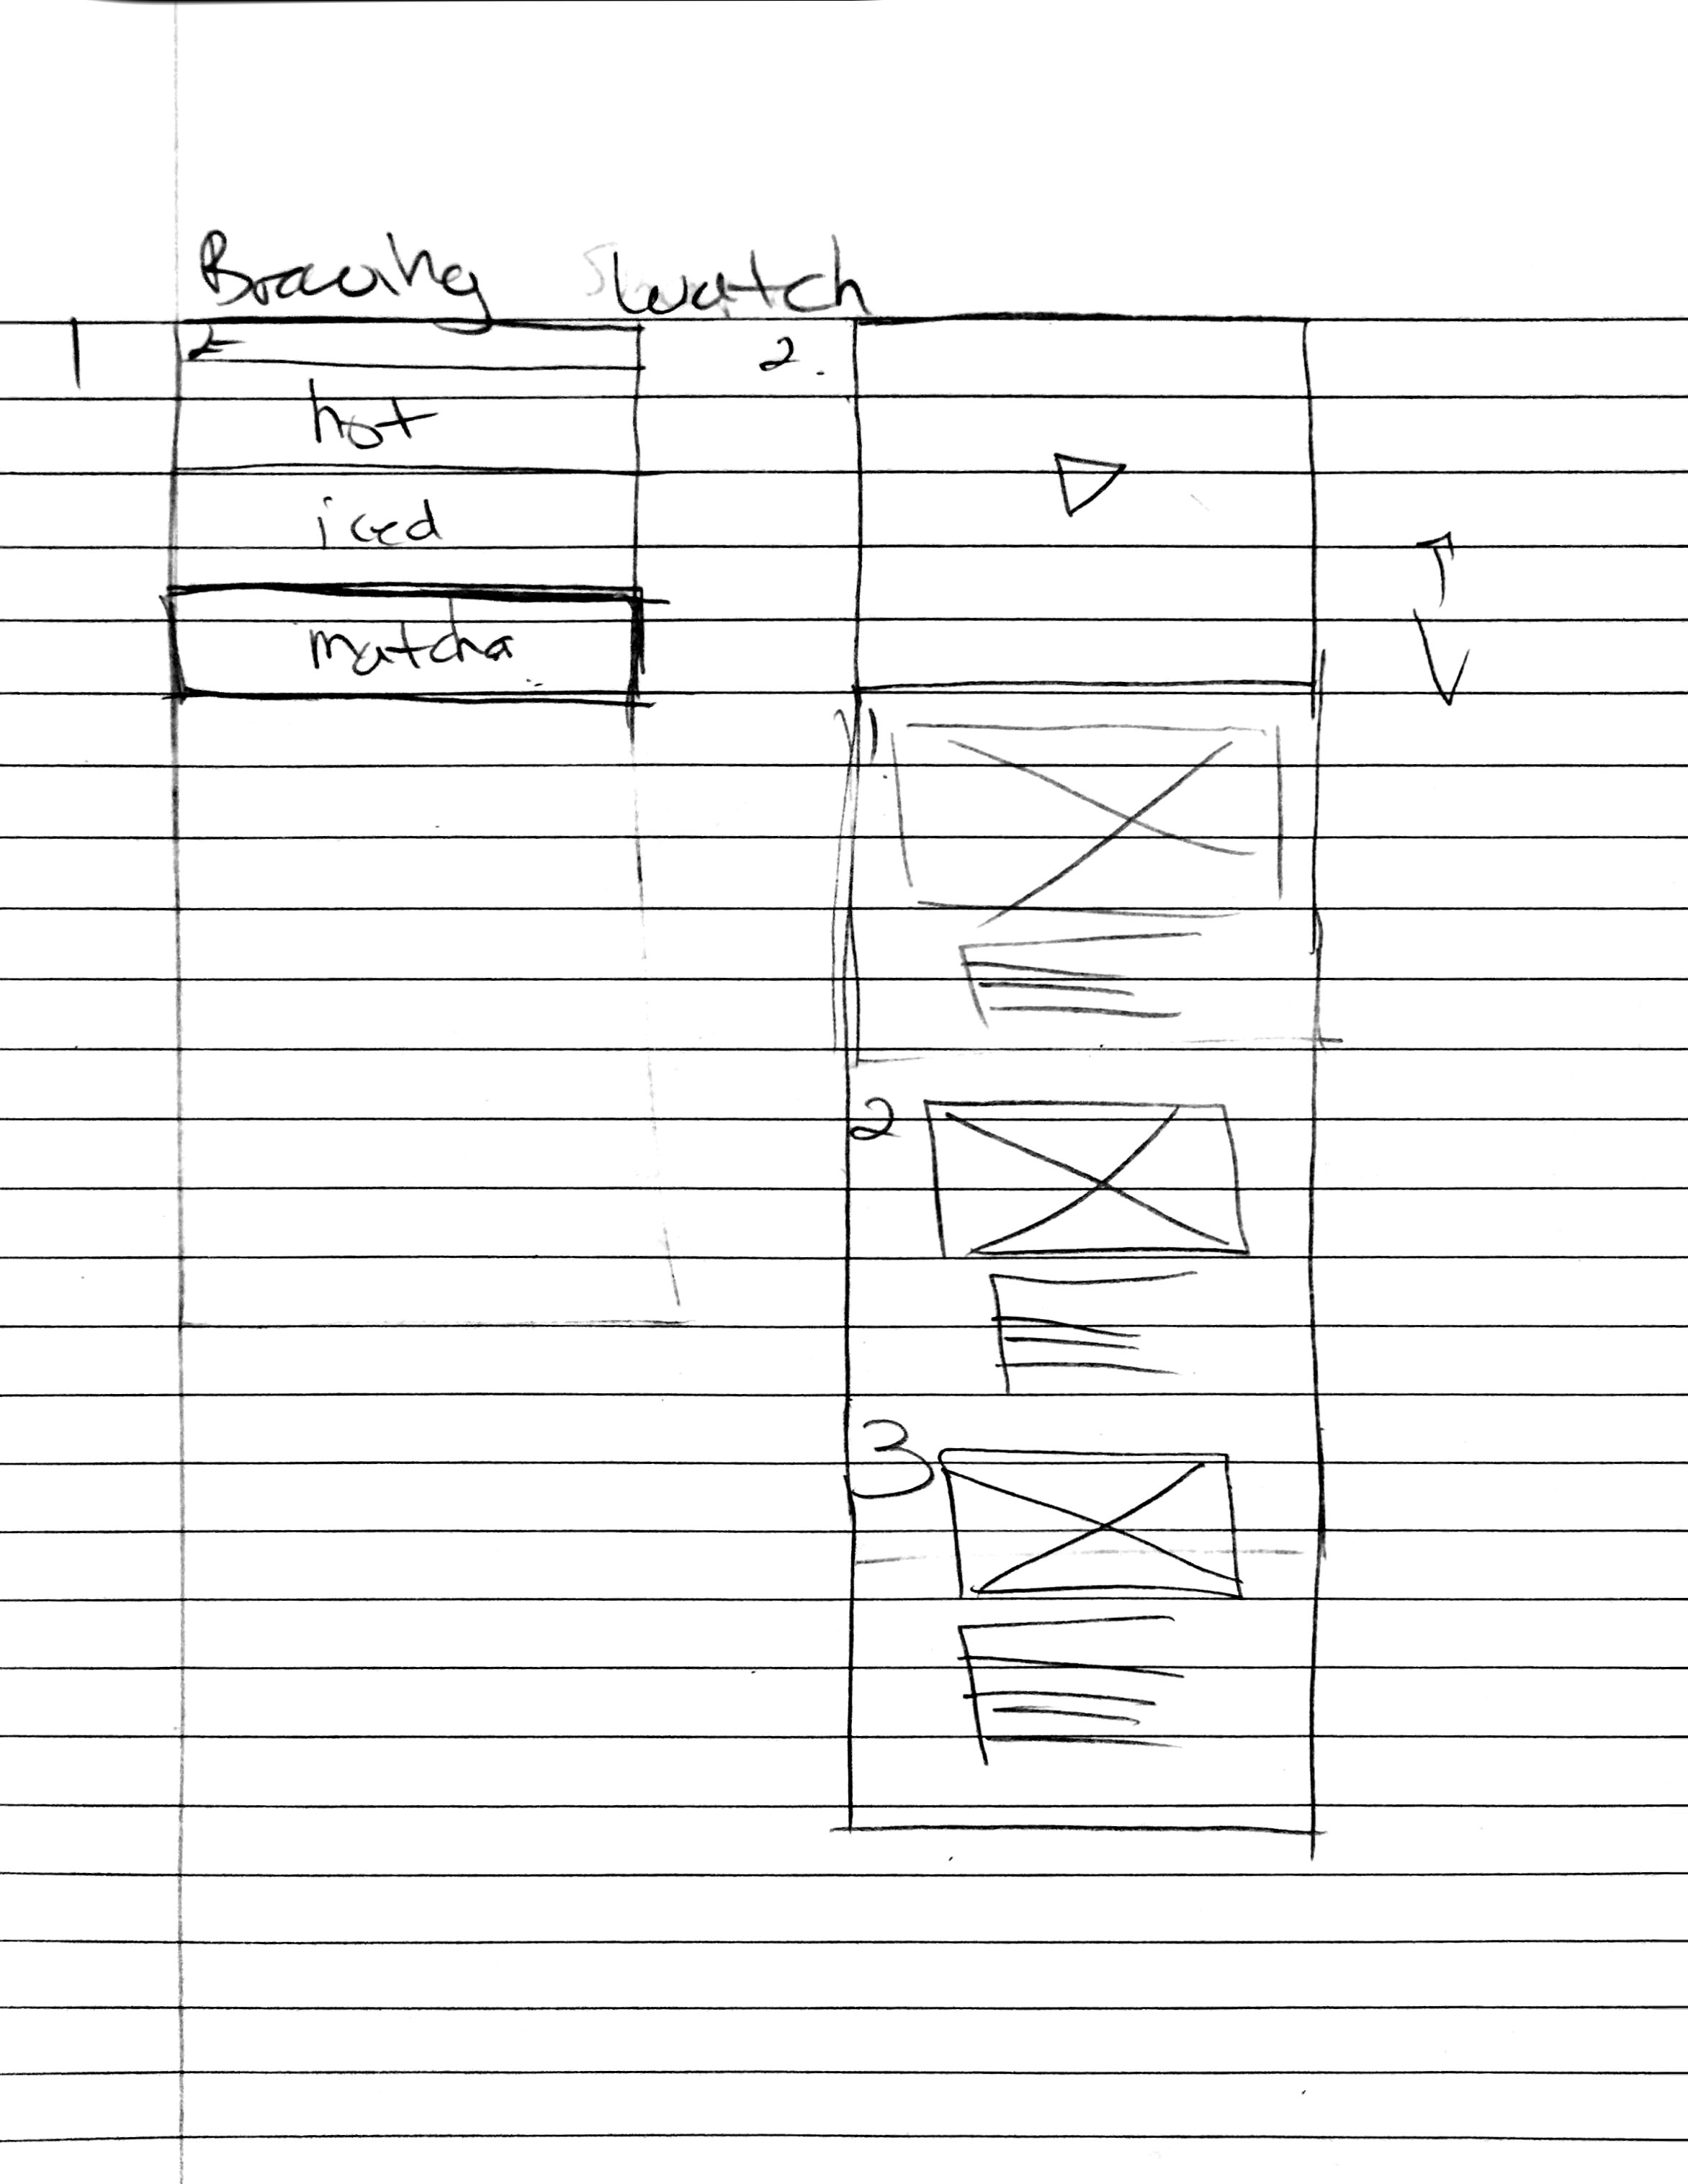 Brewing watch
1
2.
hot
iced
matcha
1.
2
3